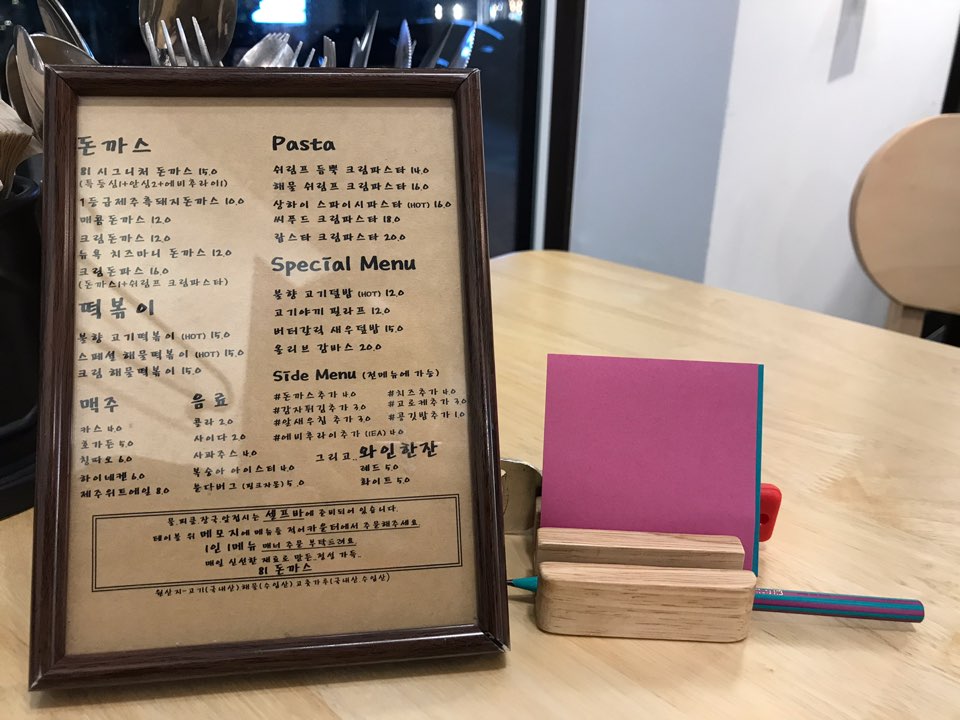 돈까스
81 시그니처 돈까스 15.0
(특등심1+안심2+에비후라이1)
1등급제주흑돼지돈까스 10.0
매콤돈까스 12.0
크림돈까스 12.0
뉴욕 치즈마니 돈까스 12.0
크림돈파스 16.0
(돈까스1+쉬림프 크림파스타)
떡볶이
불향 고기떡볶이 (HOT) 15.0
스페셜 해물떡볶이 (HOT) 15.0
크림 해물떡볶이 15.0
맥주
카스 4.0
호가든 5.0
칭따오 6.0
하이네켄 6.0
제주위트에일 8.0
음료
콜라 2.0
사이다 2.0
사과주스 4.0
복숭아 아이스티 4.0
분다버그 (핑크자몽) 5.0
Pasta
쉬림프 듬뿍 크림파스타 14.0
해물 쉬림프 크림파스타 16.0
상하이 스파이시파스타 (HOT) 16.0
씨푸드 크림파스타 18.0
랍스타 크림파스타 20.0
Special Menu
불향 고기덮밥 (HOT) 12.0
고기야끼 필라프 12.0
버터갈릭 새우덮밥 15.0
올리브 감바스 20.0
Side Menu (전메뉴에 가능)
#돈까스추가 4.0 #치즈추가 4.0
#감자튀김추가 3.0 #고로케추가 3.0
#알새우칩 추가 3.0 #공깃밥추가 1.0
#에비후라이추가 (1EA) 4.0
그리고.. 와인한잔
레드 5.0
화이트 5.0
물,피클,장국,앞접시는 셀프바에 준비되어 있습니다.
테이블 위 메모지에 메뉴를 적어카운터에서 주문해주세요
1인 1메뉴 매너 주문 부탁드려요
매일 신선한 재료로 만든..정성 가득..
81 돈까스
원산지-고기(국내산)해물(수입산)고춧가루(국내산,수입산)